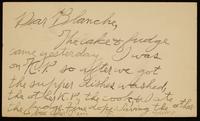 Dear Blanche,
The cake & fudge
came yesterday. I was
on K.P. so after we got
the supper dishes washed,
the other K.P. the cook & I ate
the fudge